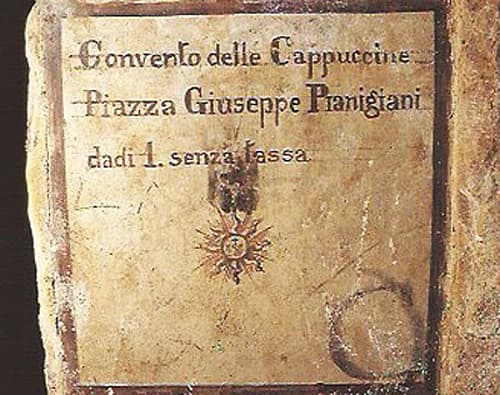 Convento delle Cappuccine
Piazza Giuseppe Pianigiani
dadi 1. senza tassa